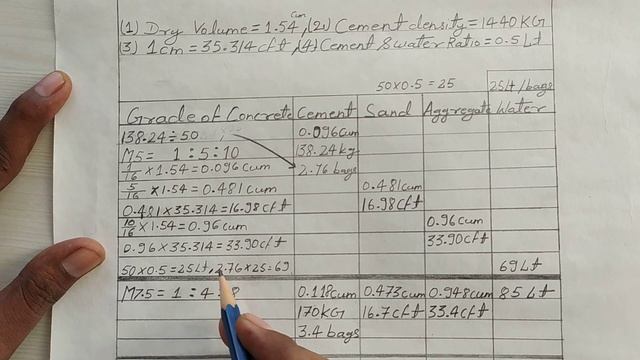 (1) Dry Volume = 1.54 cum, (2) Cement density = 1440 KG
(3) 1 cm = 35.314 cft, (4) Cement & water Ratio = 0.5 Lt
50 x 0.5 = 25 25 Lt / bags
Grade of Concrete Cement Sand Aggregate Water
138.24 ÷ 50 0.096 cum
M5 = 1 : 5 : 10 138.24 kg
1/16 x 1.54 = 0.096 cum 2.76 bags
5/16 x 1.54 = 0.481 cum 0.481 cum
0.481 x 35.314 = 16.98 cft 16.98 cft
10/16 x 1.54 = 0.96 cum 0.96 cum
0.96 x 35.314 = 33.90 cft 33.90 cft
50 x 0.5 = 25 Lt, 2.76 x 25 = 69 69 Lt
M7.5 = 1 : 4 : 8 0.118 cum 0.473 cum 0.948 cum 85 Lt
170 KG 16.7 cft 33.4 cft
3.4 bags